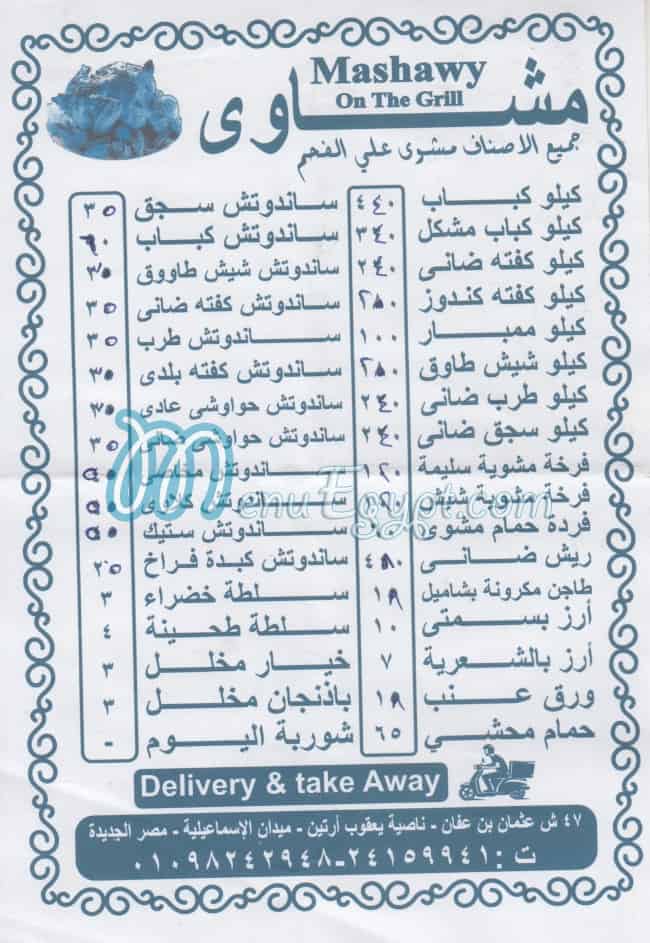 Mashawy
On The Grill
مشاوى
جميع الاصناف مشوى علي الفحم
كيلو كباب ٤٤٠
كيلو كباب مشكل ٣٤٠
كيلو كفته ضانى ٢٤٠
كيلو كفته كندوز ٢٨٠
كيلو ممبار ١٠٠
كيلو شيش طاوق ٢٨٠
كيلو طرب ضانى ٢٤٠
كيلو سجق ضانى ٢٤٠
فرخة مشوية سليمة ١٢٠
فرخة مشوية شيش
فردة حمام مشوى
ريش ضانى ٤٨٠
طاجن مكرونة بشاميل
أرز بسمتى ١٠
أرز بالشعرية ٧
ورق عنب
حمام محشي ٦٥
ساندوتش سجق ٣٥
ساندوتش كباب
ساندوتش شيش طاووق ٣٥
ساندوتش كفته ضانى ٣٥
ساندوتش طرب ٣٥
ساندوتش كفته بلدى ٣٥
ساندوتش حواوشى عادى ٣٥
ساندوتش حواوشى ضانى ٣٥
ساندوتش مخاصى
ساندوتش كلاوى
ساندوتش ستيك
ساندوتش كبدة فراخ ٢٥
سلطة خضراء ٣
سلطة طحينة ٤
خيار مخلل ٣
باذنجان مخلل ٣
شوربة اليوم -
MenuEgypt.com
Delivery & take Away
٤٧ ش عثمان بن عفان - ناصية يعقوب أرتين - ميدان الإسماعيلية - مصر الجديدة
ت : ٢٤١٥٩٩٤١-٠١٠٩٨٢٤٢٩٤٨